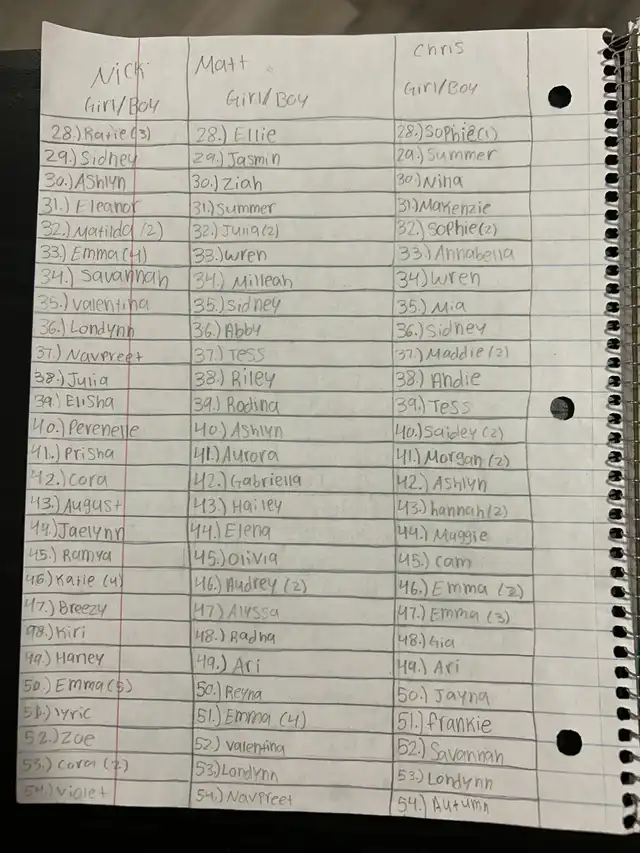 Nick Matt Chris
Girl/Boy Girl/Boy Girl/Boy
28.) Katie (3) 28.) Ellie 28.) Sophie (1)
29.) Sidney 29.) Jasmin 29.) Summer
30.) Ashlyn 30.) Ziah 30.) Nina
31.) Eleanor 31.) Summer 31.) Makenzie
32.) Matilda (2) 32.) Julia (2) 32.) Sophie (2)
33.) Emma (4) 33.) Wren 33.) Annabella
34.) Savannah 34.) Milleah 34.) Wren
35.) Valentina 35.) Sidney 35.) Mia
36.) Londynn 36.) Abby 36.) Sidney
37.) Navpreet 37.) Tess 37.) Maddie (2)
38.) Julia 38.) Riley 38.) Andie
39.) Elisha 39.) Rodina 39.) Tess
40.) Perenelle 40.) Ashlyn 40.) Saidey (2)
41.) Prisha 41.) Aurora 41.) Morgan (2)
42.) Cora 42.) Gabriella 42.) Ashlyn
43.) August 43.) Hailey 43.) hannah (2)
44.) Jaelynn 44.) Elena 44.) Maggie
45.) Ramya 45.) Olivia 45.) Cam
46.) Katie (4) 46.) Audrey (2) 46.) Emma (2)
47.) Breezy 47.) Alyssa 47.) Emma (3)
48.) Kiri 48.) Radha 48.) Gia
49.) Harley 49.) Ari 49.) Ari
50.) Emma (5) 50.) Reyna 50.) Jayna
51.) lyric 51.) Emma (4) 51.) frankie
52.) Zoe 52.) Valentina 52.) Savannah
53.) Cora (2) 53.) Londynn 53.) Londynn
54.) Violet 54.) Navpreet 54.) Autumn